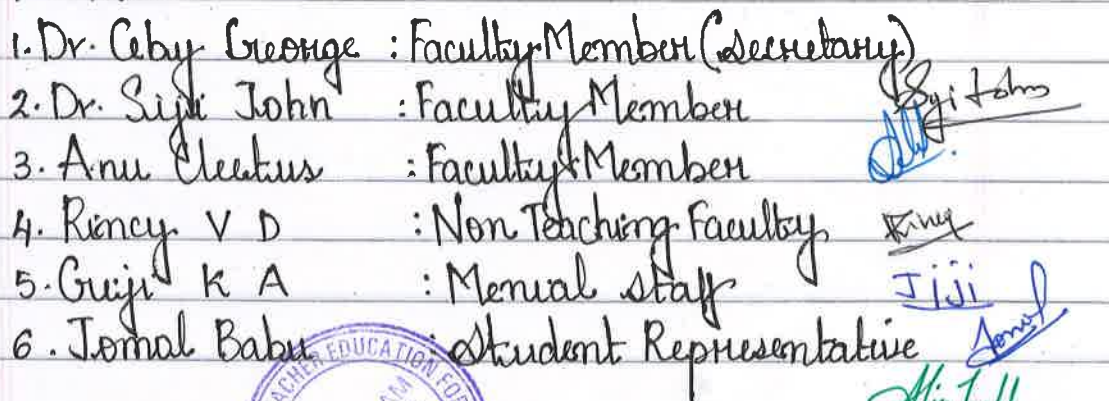 1. Dr. Ceby George : Faculty Member (Secretary)
2. Dr. Siji John : Faculty Member Syi John
3. Anu Cleetus : Faculty Member
4. Rincy V D : Non Teaching Faculty Rincy
5. Guiji K A : Menial Staff Jiji
6. Jomal Babu : Student Representative Jomal
ACHER EDUCATION FOR
AM